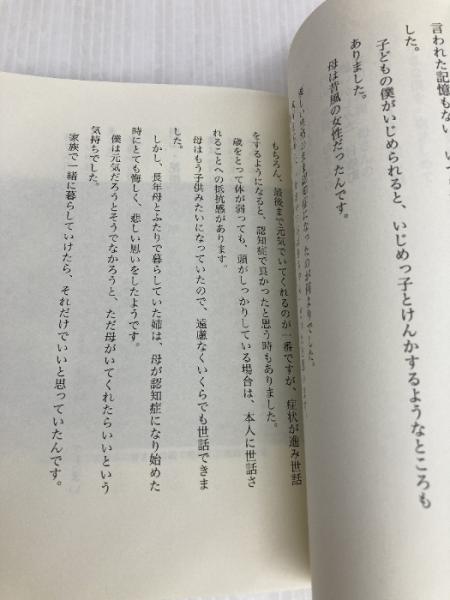 言われた記憶もない。い
した。
子どもの僕がいじめられると、いじめっ子とけんかするようなところも
ありました。
母は昔風の女性だったんです。
になったのが何よりでした。
もちろん、最後まで元気でいてくれるのが一番ですが、症状が進み世話
をするようになると、認知症で良かったと思う時もありました。
歳をとって体が弱っても、頭がしっかりしている場合は、本人に世話さ
れることへの抵抗感があります。
母はもう子供みたいになっていたので、遠慮なくいくらでも世話できま
した。
しかし、長年母とふたりで暮らしていた姉は、母が認知症になり始めた
時にとても悔しく、悲しい思いをしたようです。
僕は元気だろうとそうでなかろうと、ただ母がいてくれたらいいという
気持ちでした。
家族で一緒に暮らしていけたら、それだけでいいと思っていたんです。